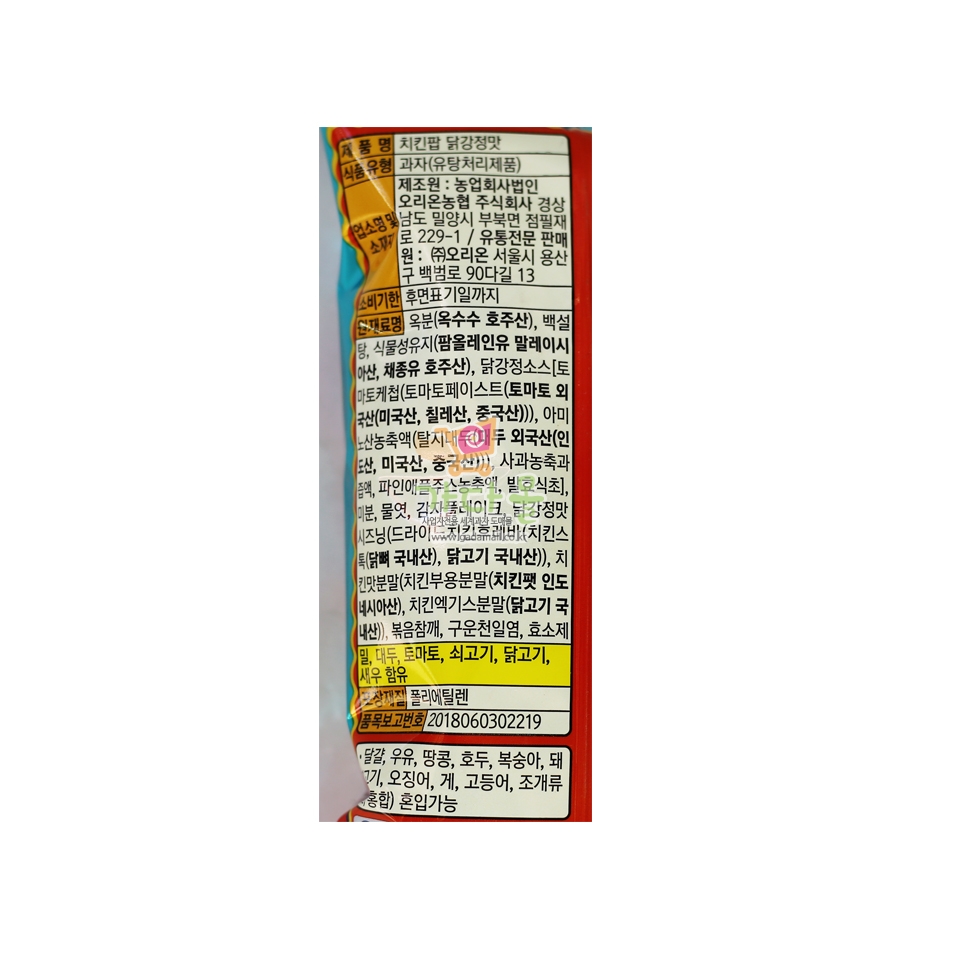 제 품 명 치킨팝 닭강정맛
식품유형 과자(유탕처리제품)
업소명 및 소재지 제조원 : 농업회사법인
오리온농협 주식회사 경상
남도 밀양시 부북면 점필재
로 229-1 / 유통전문 판매
원 : ㈜오리온 서울시 용산
구 백범로 90다길 13
소비기한 후면표기일까지
원재료명 옥분(옥수수 호주산), 백설
탕, 식물성유지(팜올레인유 말레이시
아산, 채종유 호주산), 닭강정소스[토
마토케첩(토마토페이스트(토마토 외
국산(미국산, 칠레산, 중국산))), 아미
노산농축액(탈지대두(대두 외국산(인
도산, 미국산, 중국산))), 사과농축과
즙액, 파인애플주스농축액, 발효식초],
미분, 물엿, 감자플레이크, 닭강정맛
시즈닝(드라이드치킨후레바(치킨스
톡(닭뼈 국내산), 닭고기 국내산)), 치
킨맛분말(치킨부용분말(치킨팻 인도
네시아산), 치킨엑기스분말(닭고기 국
내산)), 볶음참깨, 구운천일염, 효소제
밀, 대두, 토마토, 쇠고기, 닭고기,
새우 함유
포장재질 폴리에틸렌
품목보고번호 2018060302219
· 달걀, 우유, 땅콩, 호두, 복숭아, 돼
고기, 오징어, 게, 고등어, 조개류
홍합) 혼입가능
가다몰
사업자전용 세계과자 도매몰
www.gadamall.co.kr